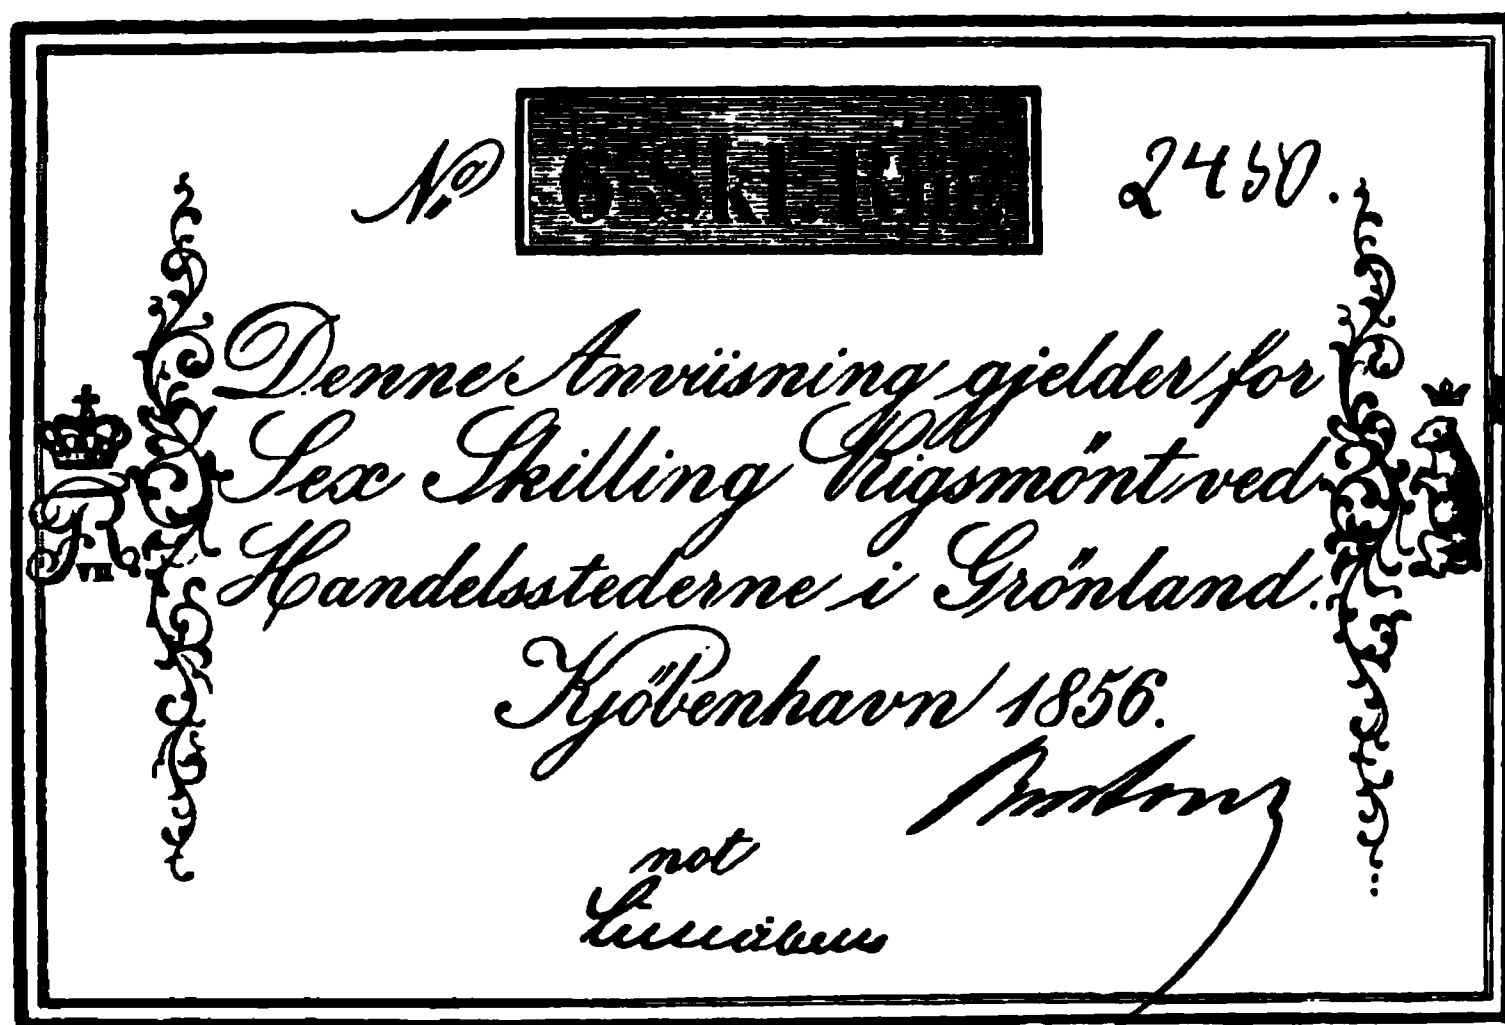 No 6 Sk. R.M. 2450.
Denne Anviisning gjelder for
Sex Skilling Rigsmönt ved
Handelsstederne i Grönland.
Kjöbenhavn 1856.
not
VII